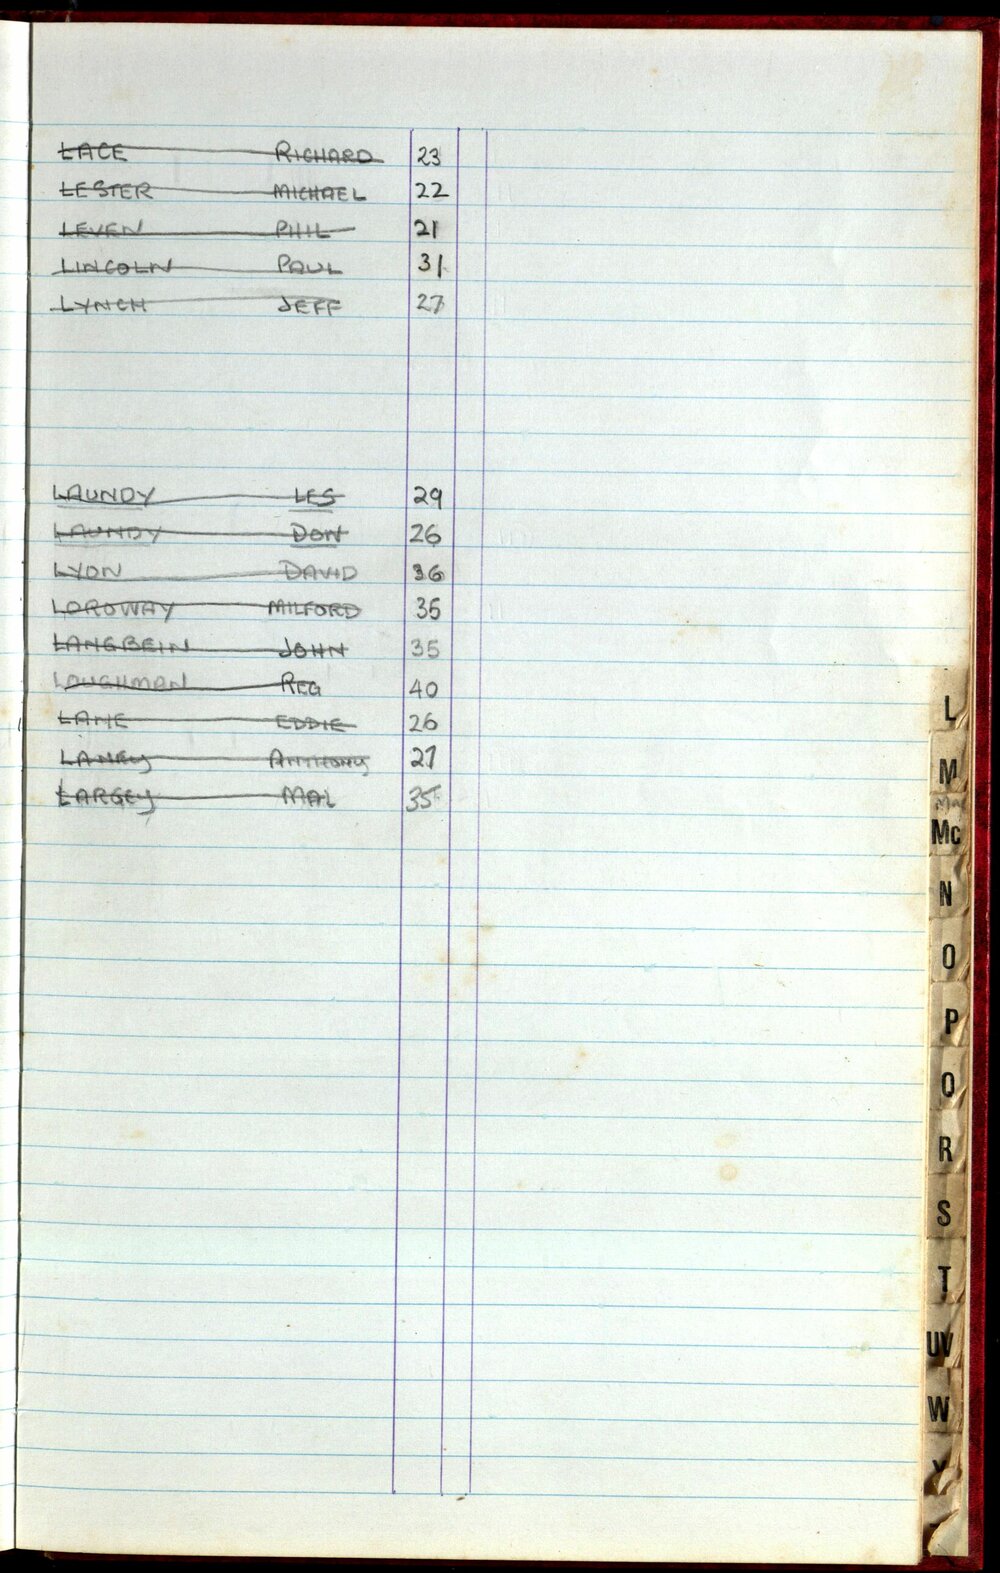 LACE RICHARD 23
LESTER MICHAEL 22
LEVEN PHIL 21
LINCOLN PAUL 31
LYNCH JEFF 27
LAUNDY LES 29
LAUNDY DON 26
LYON DAVID 36
LORDWAY MILFORD 35
LANGBEIN JOHN 35
LOUGHMAN REG 40
LANE EDDIE 26
LANEY ANTHONY 27
LARGEY MAL 35
L
M
Mc
N
O
P
Q
R
S
T
UV
W